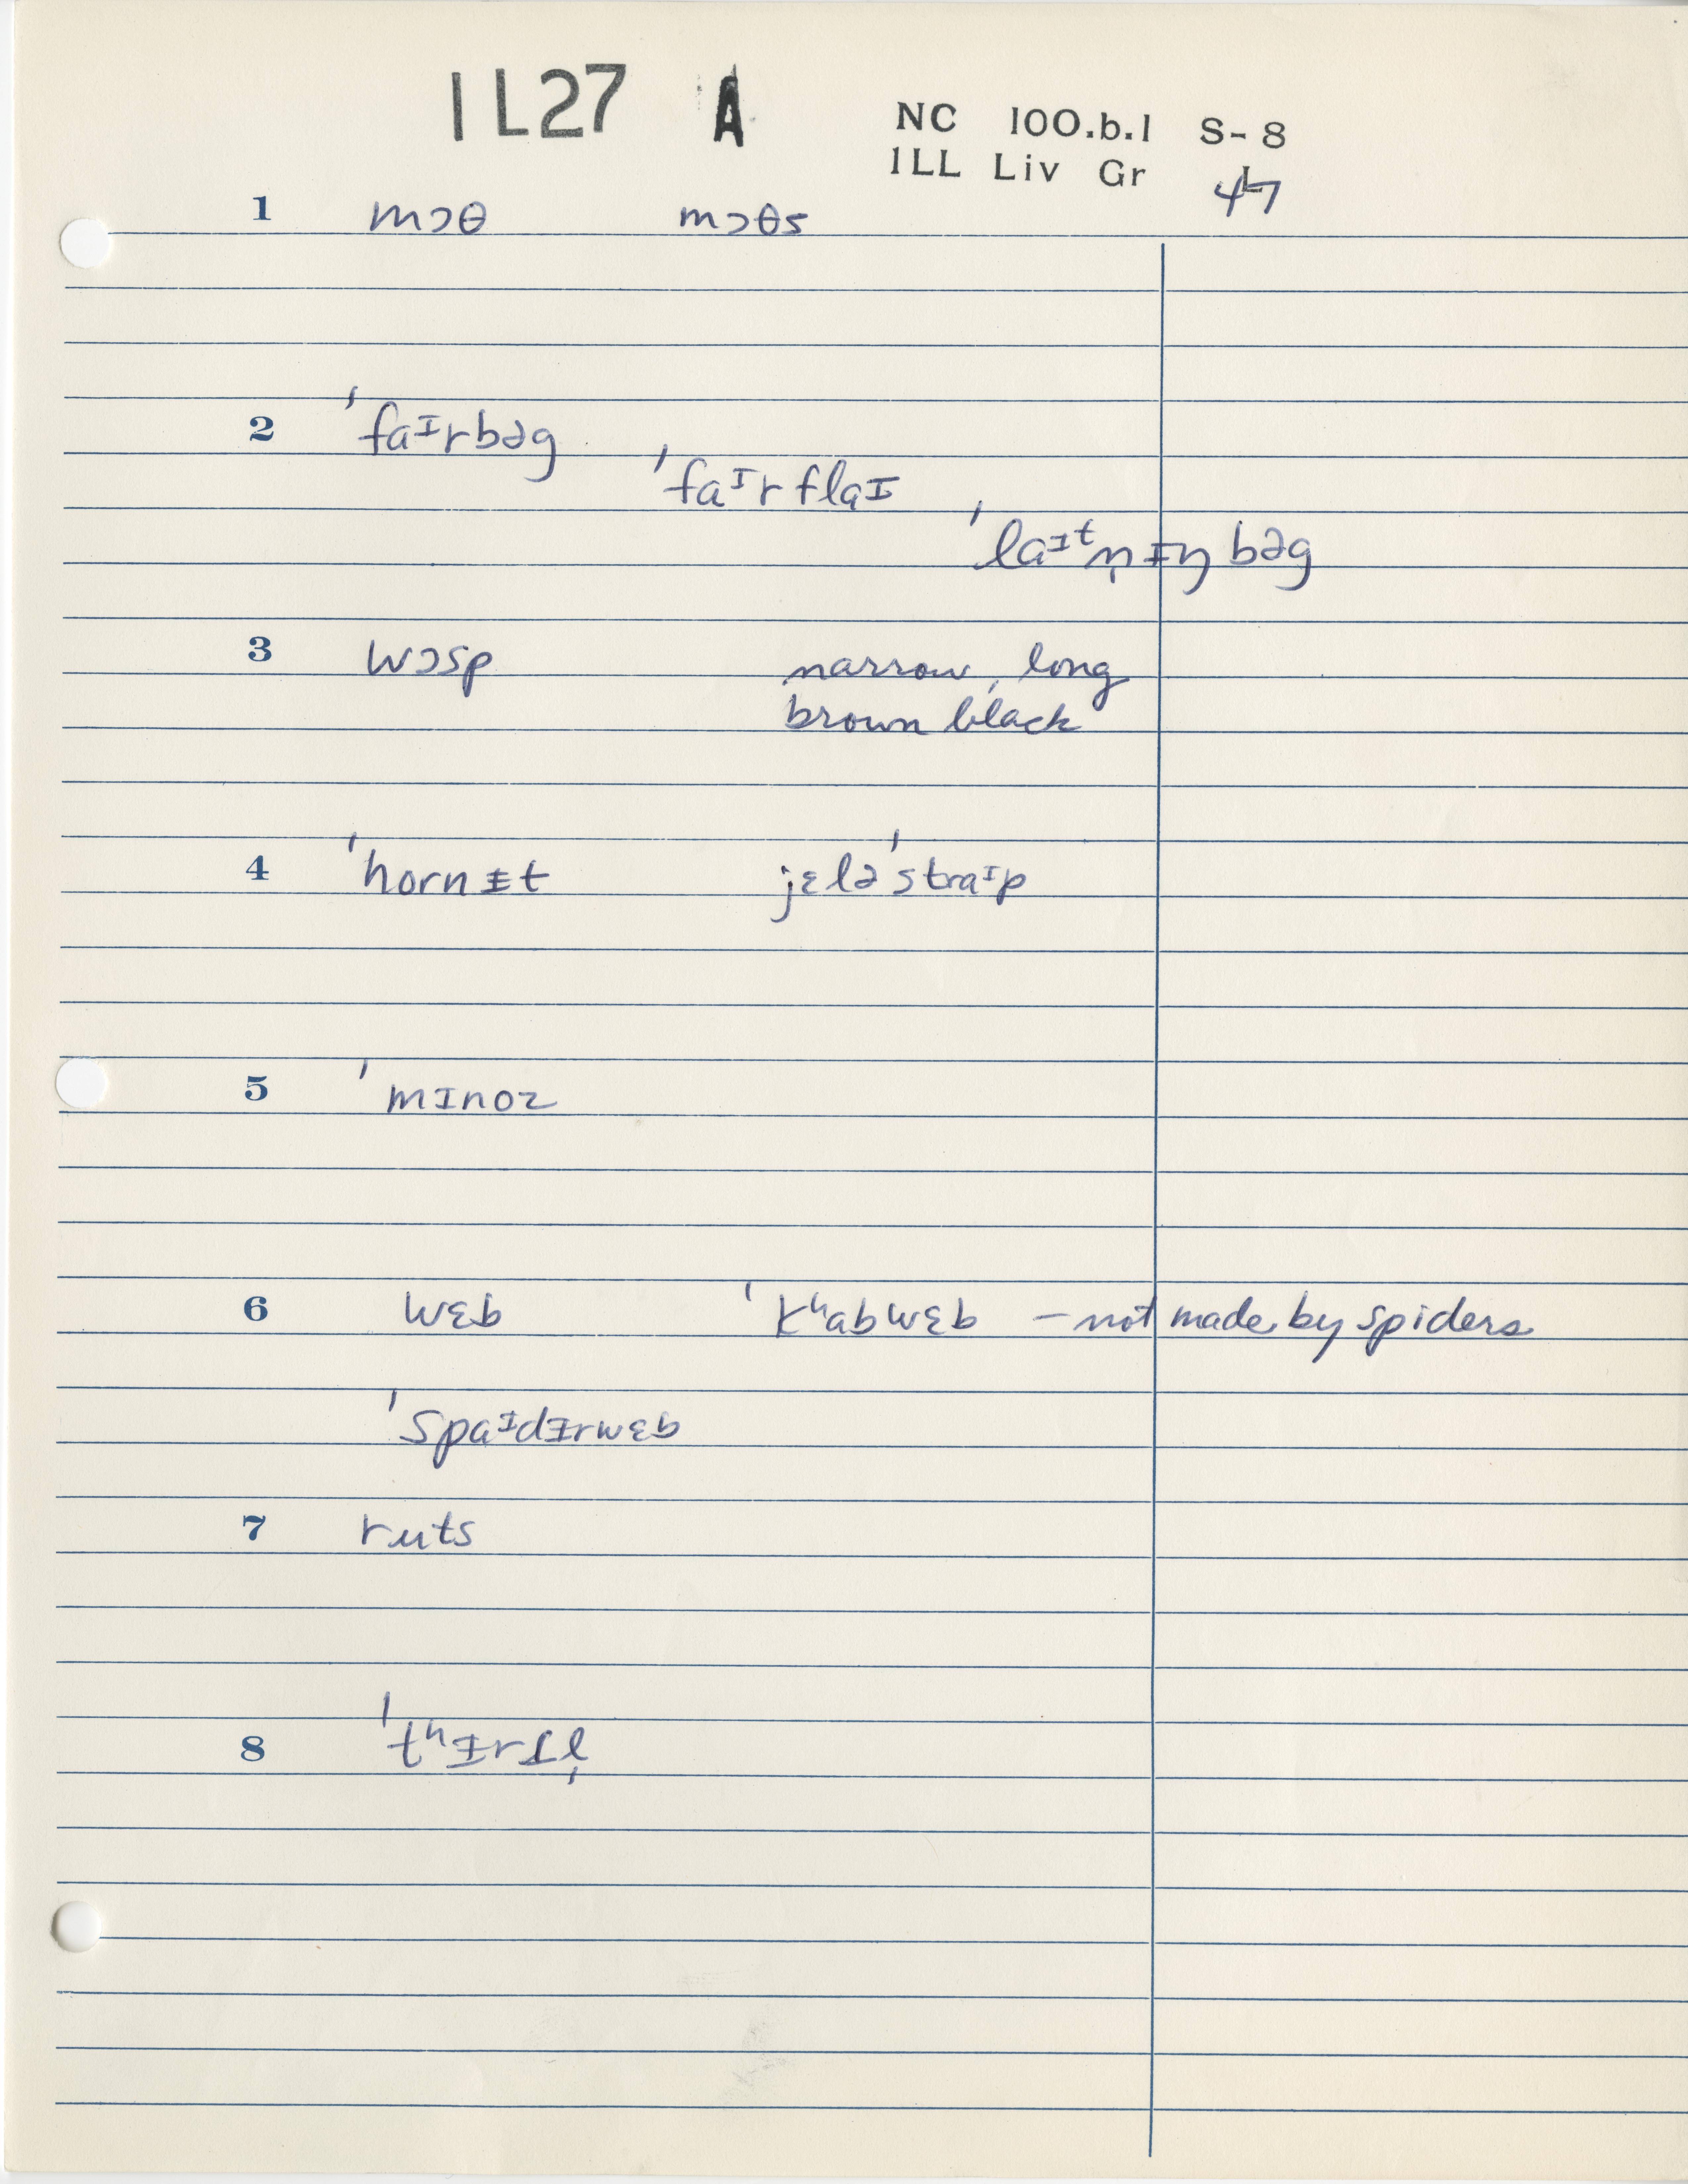 1L27 A
NC 100.b.1 S-8
ILL Liv Gr 47
1 mɔθ mɔθs
2 ˈfaᴵrbəg
ˈfaᴵrflaɪ
ˈlaᴵᵗn̩ɪŋbəg
3 wɔsp narrow, long
brown black
4 ˈhornᵻt jɛləˈstraᴵp
5 ˈmɪnoz
6 wɛb ˈkʰabwɛb – not made by spiders
ˈspaᴵdᵻrwɛb
7 ruts
8 ˈtʰᵻrɪl̩